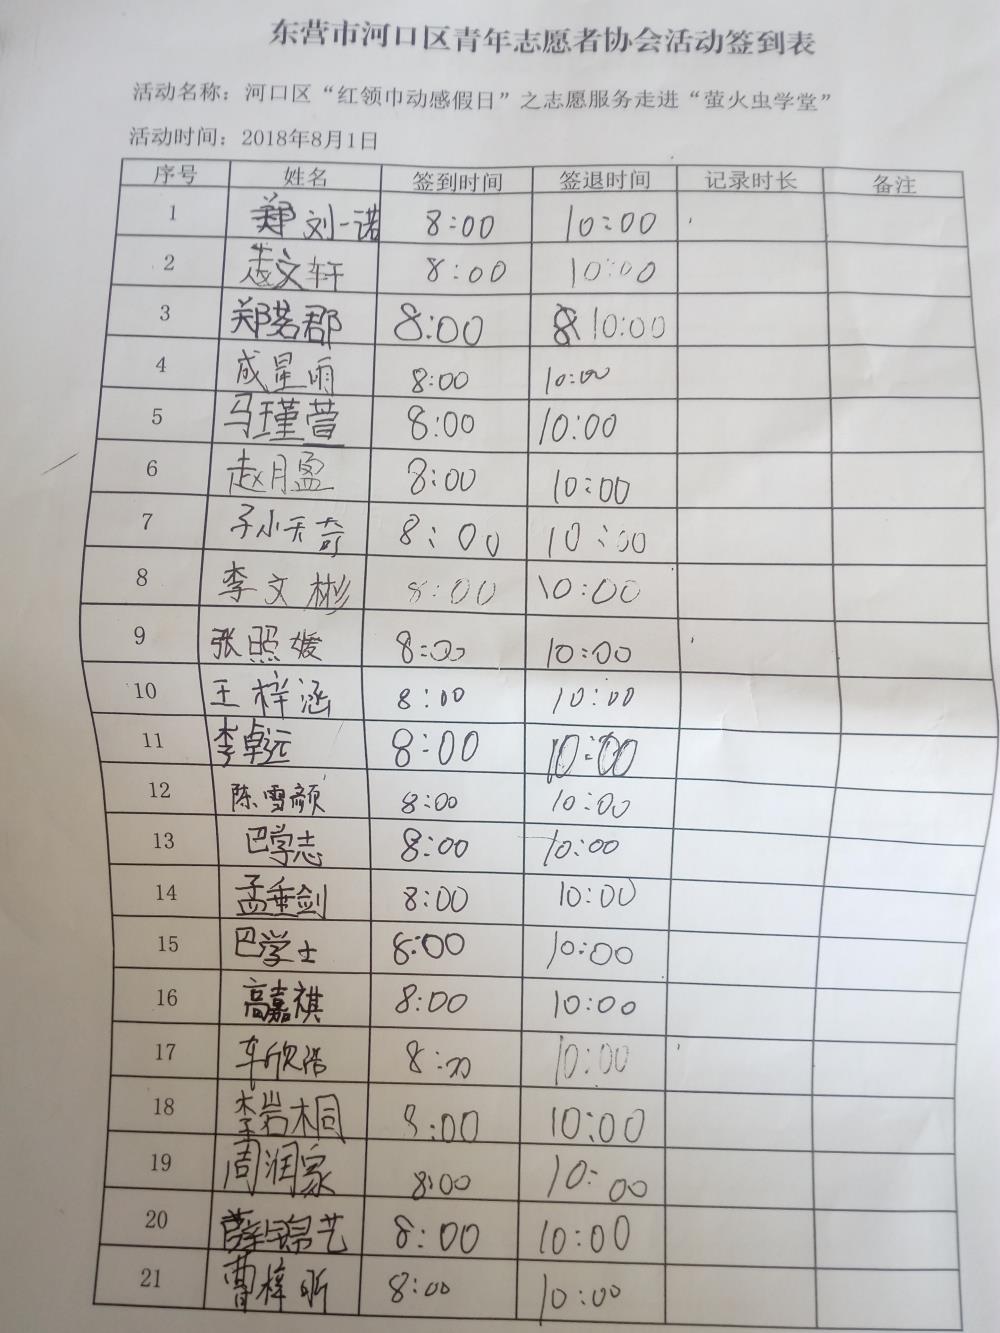 东营市河口区青年志愿者协会活动签到表
活动名称：河口区“红领巾动感假日”之志愿服务走进“萤火虫学堂”
活动时间：2018年8月1日
序号 姓名 签到时间 签退时间 记录时长 备注
1 郑刘一诺 8:00 10:00
2 文轩 8:00 10:00
3 郑茗郡 8:00 10:00
4 成星雨 8:00 10:00
5 马瑾萱 8:00 10:00
6 赵月盈 8:00 10:00
7 8:00 10:00
8 李文彬 8:00 10:00
9 张照媛 8:00 10:00
10 王梓涵 8:00 10:00
11 李卓远 8:00 10:00
12 陈雪颜 8:00 10:00
13 巴学志 8:00 10:00
14 孟垂剑 8:00 10:00
15 巴学士 8:00 10:00
16 高嘉祺 8:00 10:00
17 车欣浩 8:00 10:00
18 李岩桐 8:00 10:00
19 周润家 8:00 10:00
20 薛锦艺 8:00 10:00
21 曹梓昕 8:00 10:00